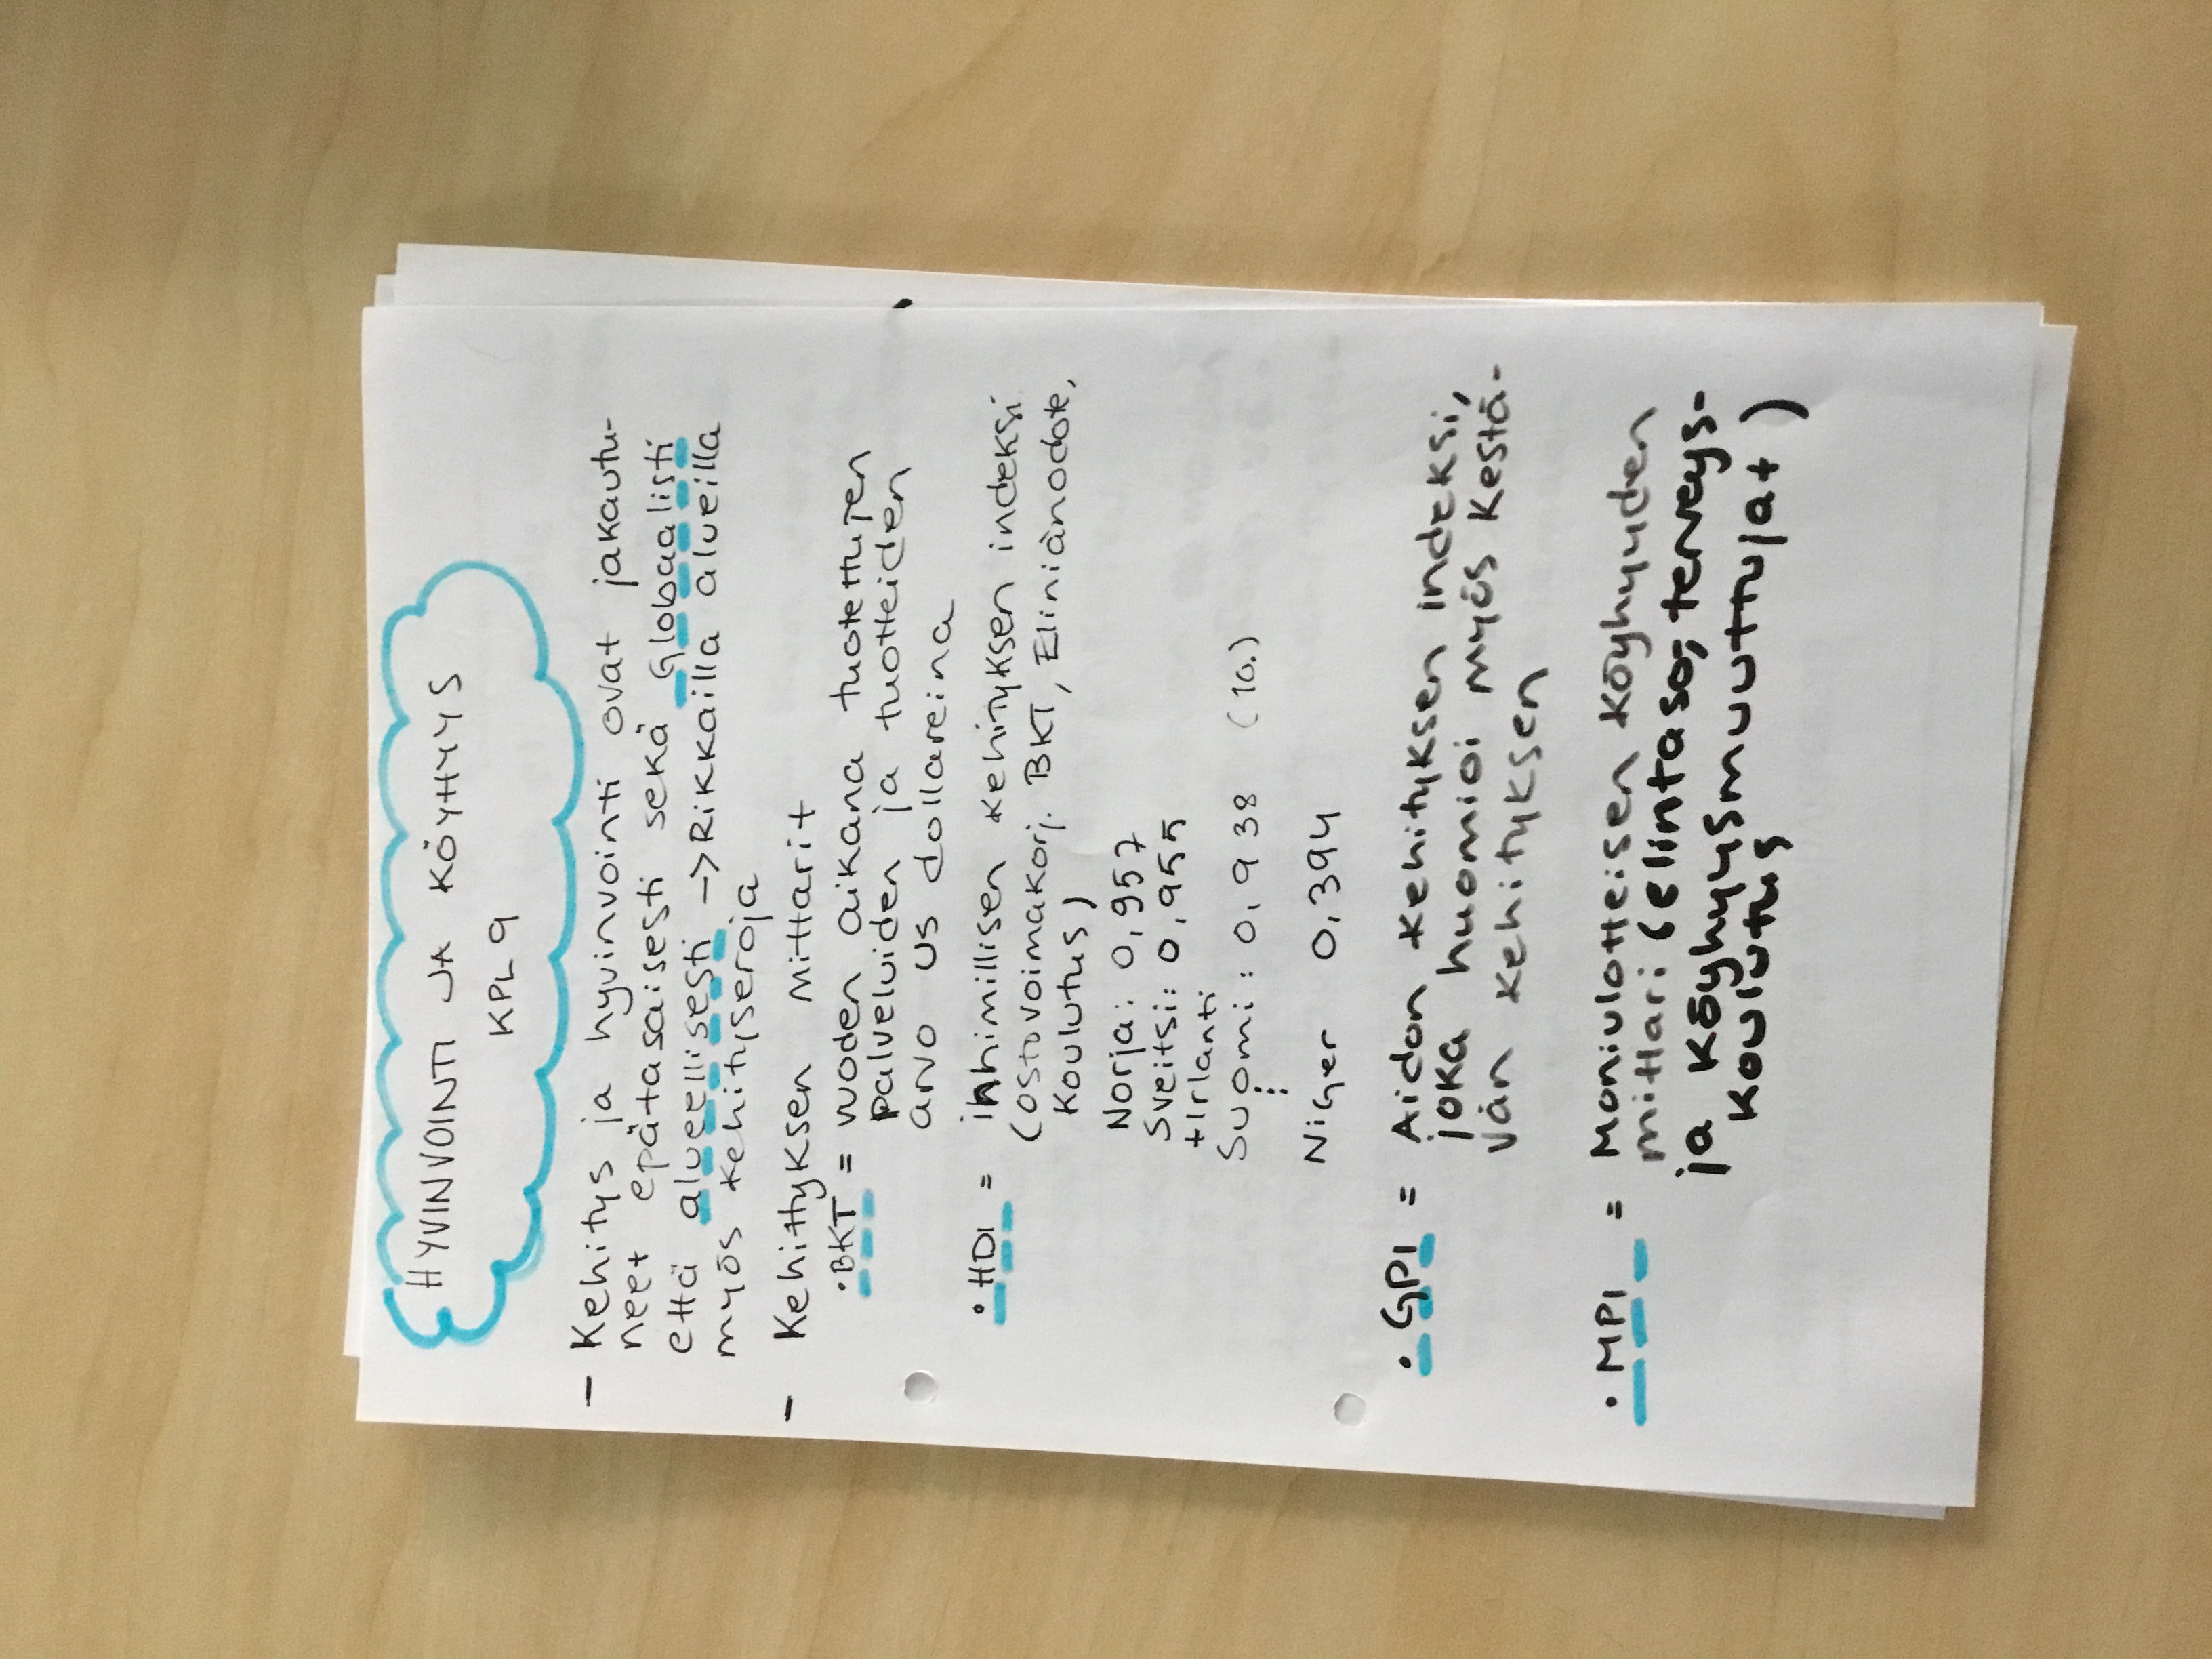 HYVINVOINTI JA KÖYHYYS
KPL 9
- Kehitys ja hyvinvointi ovat jakautu-
neet epätasaisesti sekä globaalisti
että alueellisesti -> Rikkailla alueilla
myös kehityseroja
- Kehittyksen mittarit
• BKT = vuoden aikana tuotettujen
palveluiden ja tuotteiden
arvo US dollareina
• HDI = inhimillisen kehityksen indeksi
(ostovoimakorj. BKT, Elinianodote,
Koulutus)
Norja: 0,957
Sveitsi: 0,955
+Irlanti
Suomi: 0,938 (10.)
⋮
Niger 0,394
• GPI = Aidon kehityksen indeksi,
joka huomioi myös kestä-
vän kehityksen
• MPI = Moniulotteisen köyhyyden
mittari (elintaso, terveys-
ja köyhyysmuuttujat)
koulutus